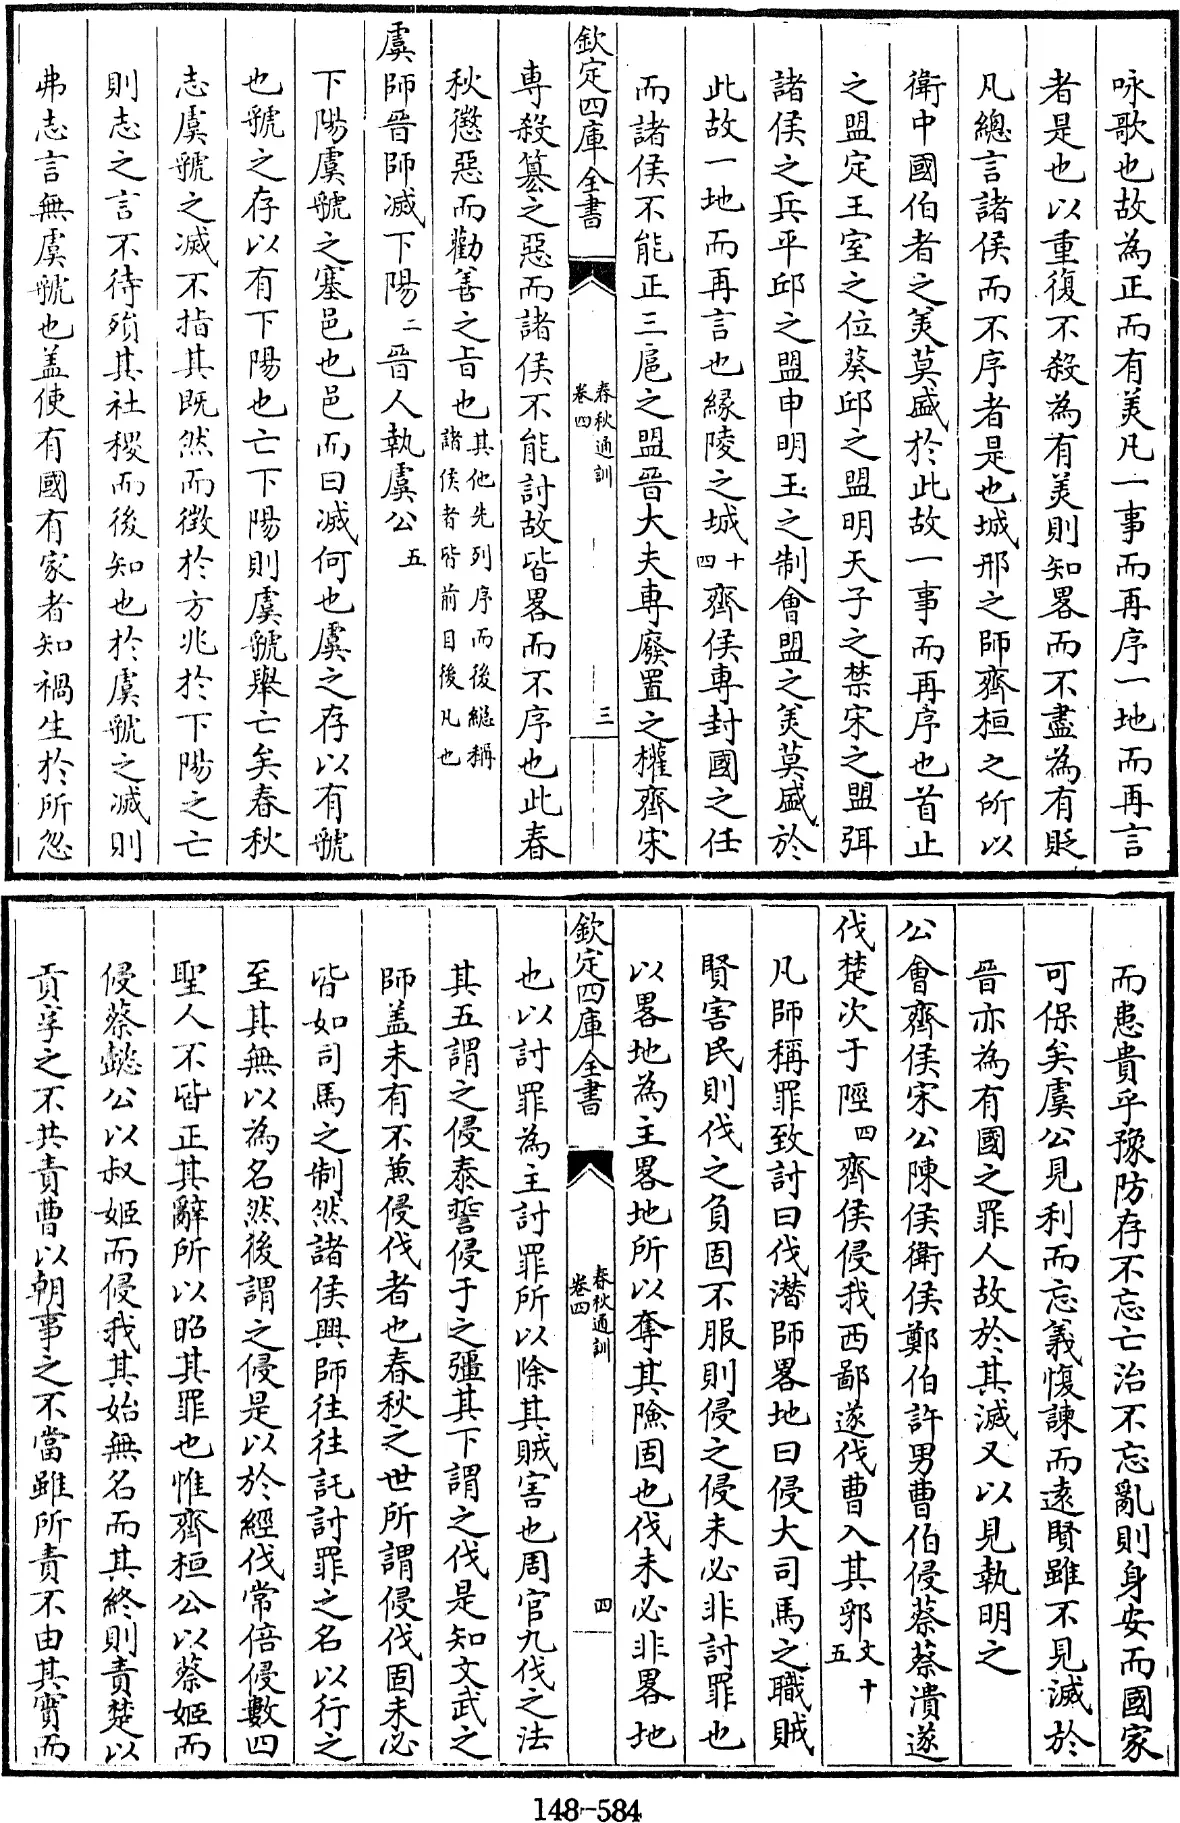 咏歌也故為正而有美凡一事而再序一地而再言
者是也以重復不殺為有美則知畧而不盡為有貶
凡總言諸侯而不序者是也城邢之師齊桓之所以
衛中國伯者之美莫盛於此故一事而再序也首止
之盟定王室之位葵邱之盟明天子之禁宋之盟弭
諸侯之兵平邱之盟申明王之制會盟之美莫盛於
此故一地而再言也緣陵之城十四齊侯専封國之任
而諸侯不能正三扈之盟晉大夫専廢置之權齊宋
欽定四庫全書
春秋通訓
卷四
三
専殺簒之惡而諸侯不能討故皆畧而不序也此春
秋懲惡而勸善之旨也其他先列序而後總稱諸侯者皆前目後凡也
虞師晉師滅下陽二晉人執虞公五
下陽虞虢之塞邑也邑而曰滅何也虞之存以有虢
也虢之存以有下陽也亡下陽則虞虢舉亡矣春秋
志虞虢之滅不指其既然而徴於方兆於下陽之亡
則志之言不待殞其社稷而後知也於虞虢之滅則
弗志言無虞虢也盖使有國有家者知禍生於所忽
而患貴乎豫防存不忘亡治不忘亂則身安而國家
可保矣虞公見利而忘義愎諫而遠賢雖不見滅於
晉亦為有國之罪人故於其滅又以見執明之
公會齊侯宋公陳侯衛侯鄭伯許男曹伯侵蔡蔡潰遂
伐楚次于陘四齊侯侵我西鄙遂伐曹入其郛文十五
凡師稱罪致討曰伐潜師畧地曰侵大司馬之職賊
賢害民則伐之負固不服則侵之侵未必非討罪也
以畧地為主畧地所以奪其險固也伐未必非畧地
欽定四庫全書
春秋通訓
卷四
四
也以討罪為主討罪所以除其賊害也周官九伐之法
其五謂之侵泰誓侵于之疆其下謂之伐是知文武之
師盖未有不兼侵伐者也春秋之世所謂侵伐固未必
皆如司馬之制然諸侯興師往往託討罪之名以行之
至其無以為名然後謂之侵是以於經伐常倍侵數四
聖人不皆正其辭所以昭其罪也惟齊桓公以蔡姬而
侵蔡懿公以叔姬而侵我其始無名而其終則責楚以
貢享之不共責曹以朝事之不當雖所責不由其實而
148-584